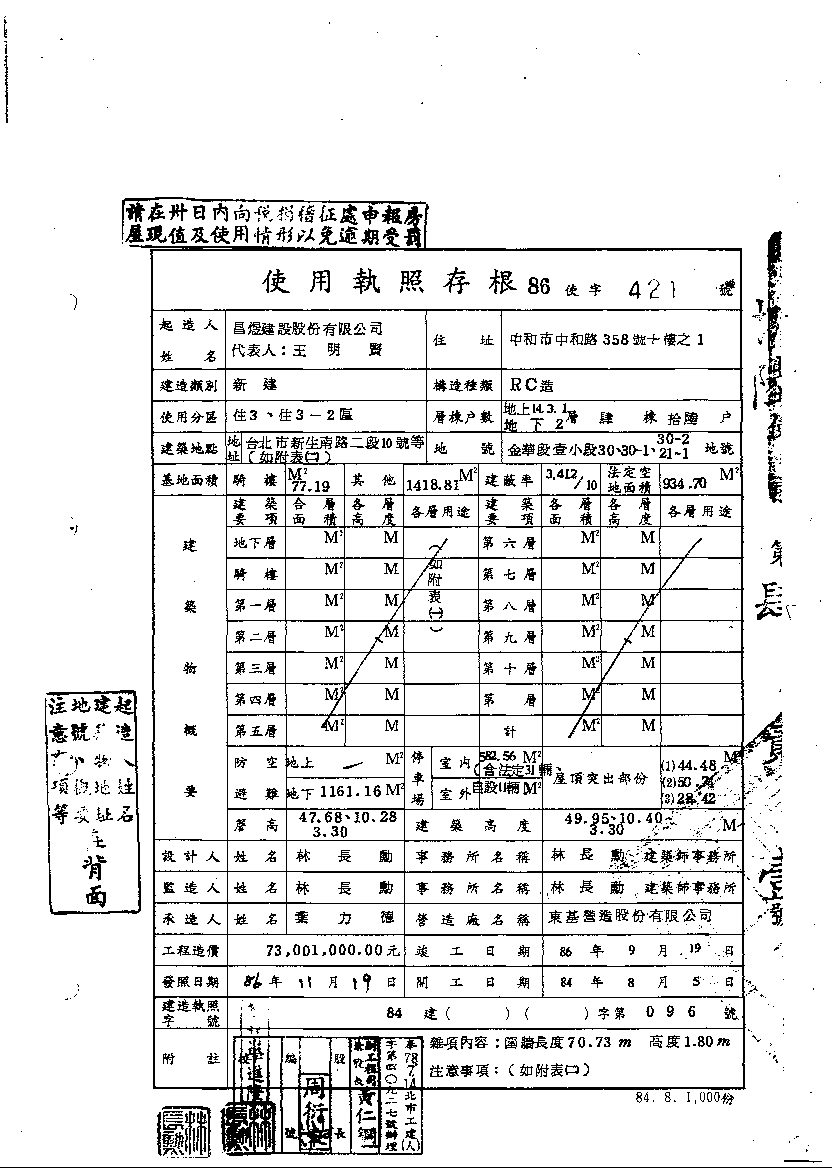 請在卅日內向稅捐稽征處申報房
屋現值及使用情形以免逾期受罰
使用執照存根 86 使字 421 號
起造人姓名 昌煜建設股份有限公司 代表人：王明賢 住址 中和市中和路358號十樓之1
建造類別 新建 構造種類 RC造
使用分區 住3、住3－2區 層棟戶數 地上14.3.1 地下2 層 肆棟 拾陸戶
建築地點 地址 台北市新生南路二段10號等（如附表㈡） 地號 金華段壹小段30、30-1、30-2 21-1 地號
基地面積 騎樓 77.19 M² 其他 1418.81 M² 建蔽率 3.412/10 法定空地面積 934.70 M²
建築要項 各層面積 各層高度 各層用途 建築要項 各層面積 各層高度 各層用途
建築物概要
地下層 M² M 第六層 M² M
騎樓 M² M 第七層 M² M
第一層 M² M 第八層 M² M
第二層 M² M 第九層 M² M
第三層 M² M 第十層 M² M
第四層 M² M 第 層 M² M
第五層 M² M 計 M² M
防空避難 地上 M² 地下 1161.16 M² 停車場 室內 582.56 M²（含法定31輛、 室外 自設11輛 M² 屋頂突出部份 (1)44.48 M² (2)50.74 (3)28.42
簷高 47.68、10.28 3.30 建築高度 49.95、10.40、3.30 M
設計人 姓名 林長勳 事務所名稱 林長勳 建築師事務所
監造人 姓名 林長勳 事務所名稱 林長勳 建築師事務所
承造人 姓名 葉力德 營造廠名稱 東基營造股份有限公司
工程造價 73,001,000.00元 竣工日期 86年9月19日
發照日期 86年11月19日 開工日期 84年8月5日
建造執照字號 84建（ ）（ ）字第096號
附註 雜項內容：圍牆長度70.73m 高度1.80m
注意事項：（如附表㈡）
編號
股長
周衍
黃仁
84. 8. 1,000份
起造人姓名
注意
背面
第